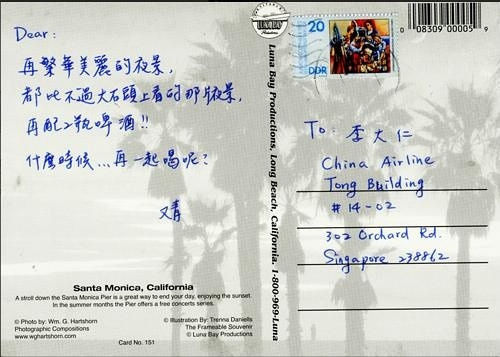 Dear:
再繁華美麗的夜景,
都比不過大石頭上看的那片夜景,
再配2瓶啤酒!!
什麼時候...再一起喝呢?
又青
Santa Monica, California
A stroll down the Santa Monica Pier is a great way to end your day, enjoying the sunset.
In the summer months the Pier offers a free concerts series.
© Photo by: Wm. G. Hartshorn
Photographic Compositions
www.wghartshorn.com
© Illustration By: Trenna Daniells
The Frameable Souvenir
© Luna Bay Productions
Card No. 151
LUNA BAY
Luna Bay Productions, Long Beach, California. 1-800-969-Luna
20
DDR
0 08309 00005 9
To: 李大仁
China Airline
Tong Building
#14-02
302 Orchard Rd.
Singapore 238862